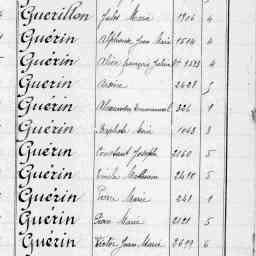 Guerillon Jules Marie 1906 4
Guérin Alphonse Jean Marie 1514 4
Guérin Alix François Julien 1533 4
Guerin 2428 5
Guérin Alexandre Emmanuel 326 1
Guérin Baptiste 1043 3
Guérin Constant Joseph 2160 5
Guérin Emile Mathurin 2415 5
Guérin Pierre Marie 241 1
Guérin Pierre Marie 2121 5
Guérin Victor Jean Marie 2699 6